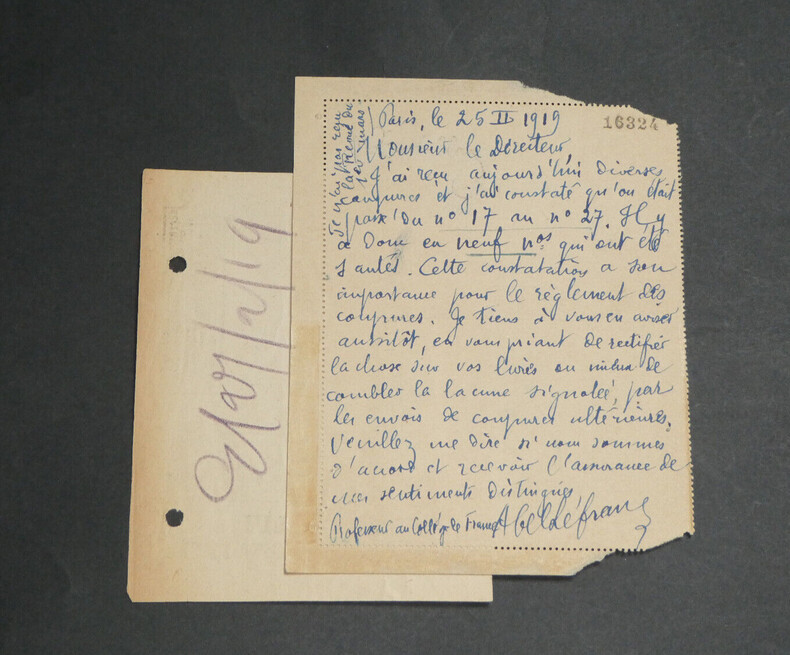 16324
Paris, le 25 II 1919
Monsieur le Directeur
J'ai reçu aujourd'hui diverses
coupures et j'ai constaté qu'on était
passé du nº 17 au nº 27. Il y
a donc eu neuf nos qui ont été
sautés. Cette constatation a son
importance pour le règlement des
coupures. Je tiens à vous en aviser
aussitôt, en vous priant de rectifier
la chose sur vos livres ou mieux de
combler la lacune signalée, par
les envois de coupures ultérieures.
Veuillez me dire si nous sommes
d'accord et recevoir l'assurance de
mes sentiments distingués
Abel Lefranc
Professeur au Collège de France
Je n'ai pas reçu
la
1er mars